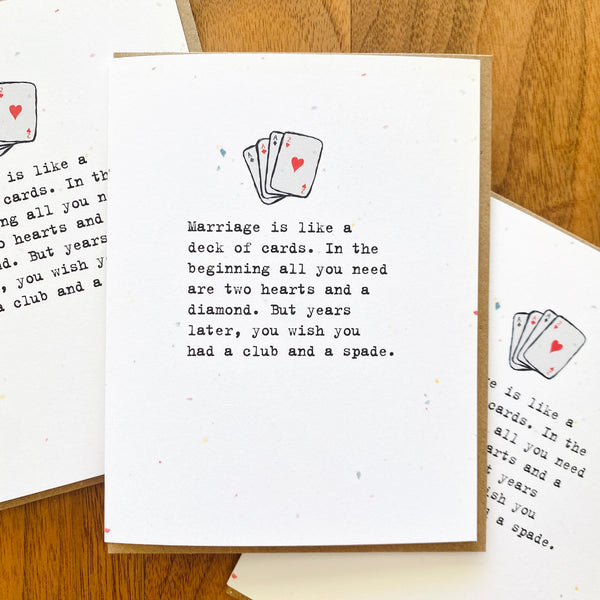 Marriage is like a
deck of cards. In the
beginning all you need
are two hearts and a
diamond. But years
later, you wish you
had a club and a spade.
is like a
cards. In th
ng all you n
hearts and
d. But years
, you wish y
a club and a
is like a
cards. In the
all you need
arts and a
years
ish you
a spade.